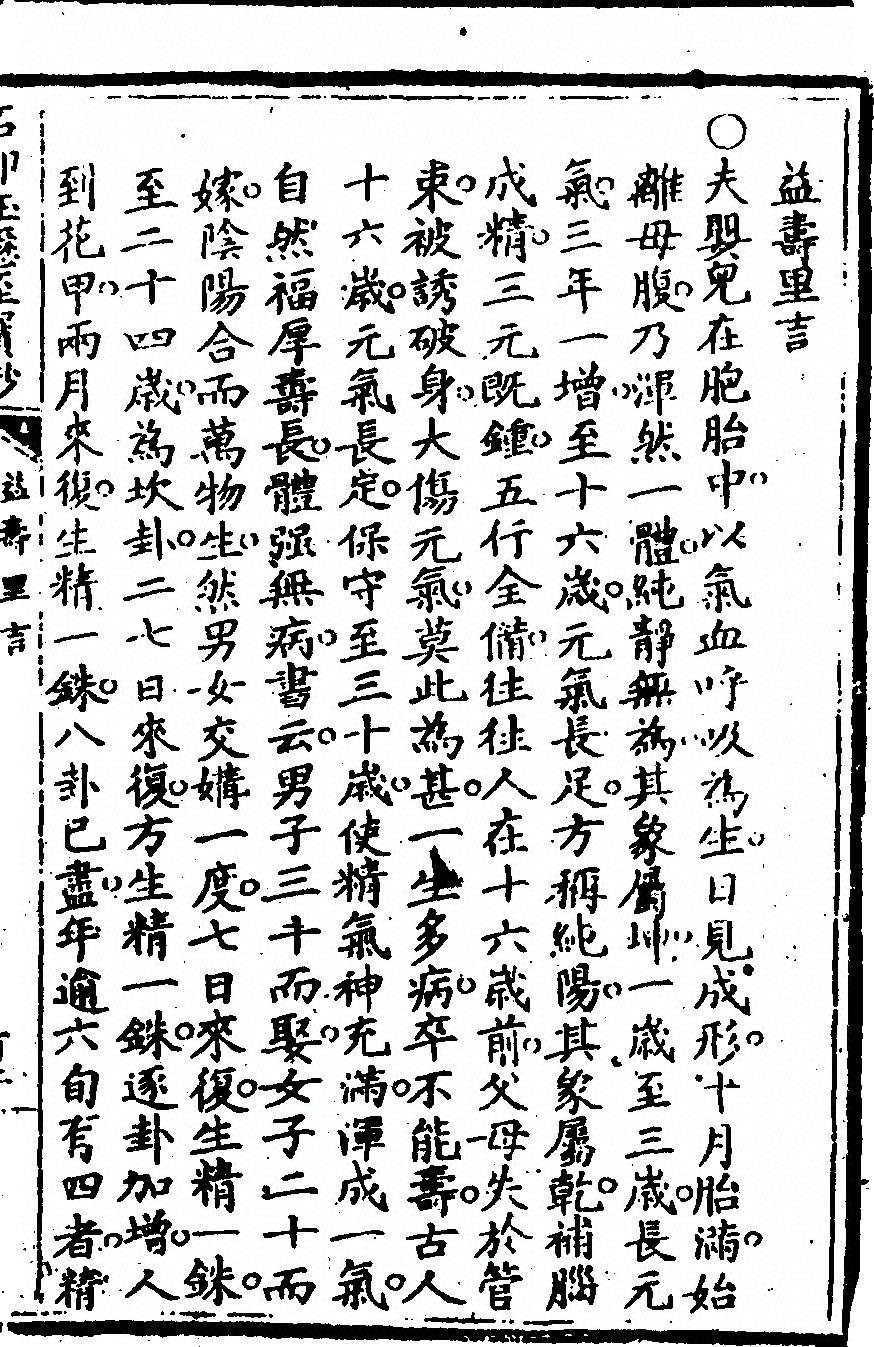 益壽里言
○夫嬰兒在胞胎中。以氣血呼吸為生。日見成形。十月胎滿。始
離母腹。乃渾然一體。純靜無為。其象屬坤。一歲至三歲。長元
氣。三年一增。至十六歲。元氣長足。方稱純陽。其象屬乾。補腦
成精。三元既鍾。五行全備。往往人在十六歲前。父母失於管
束。被誘破身。大傷元氣。莫此為甚。一生多病。卒不能壽。古人
十六歲。元氣長定。保守至三十歲。使精氣神充滿。渾成一氣。
自然福厚壽長。體强無病。書云。男子三十而娶。女子二十而
嫁。陰陽合而萬物生。然男女交媾一度。七日來復。生精一銖。
至二十四歲。為坎卦。二七日來復。方生精一銖。逐卦加增。人
到花甲。兩月來復。生精一銖。八卦已盡。年逾六旬有四者。精
益壽里言